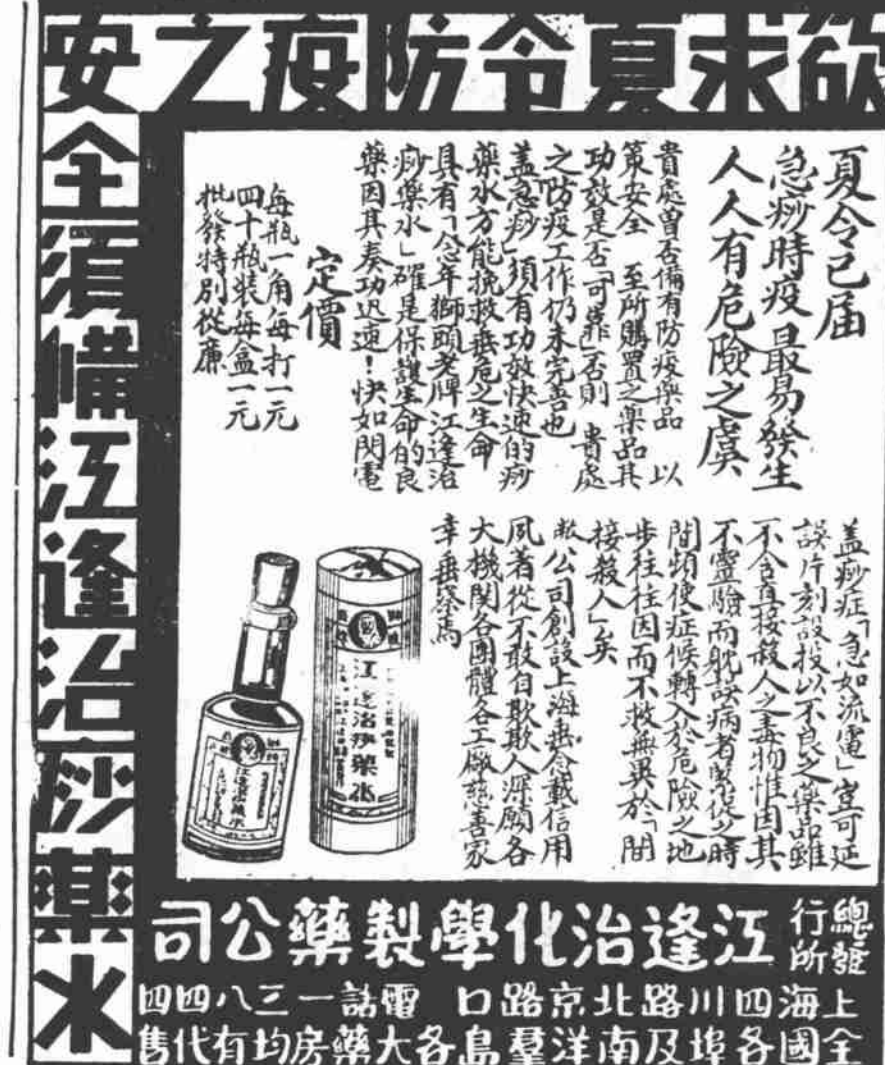 欲求夏令防疫之安全須備江逢治痧藥水
夏令已届
急痧時疫最易發生
人人有危險之虞
貴處曾否備有防疫藥品 以
策安全 至所購置之藥品其
功效是否「可靠」否則 貴處
之防疫工作仍未完善也
蓋「急痧」須有功效快速的痧
藥水方能挽救垂危之生命
具有「念年獅頭老牌江逢治
痧藥水」確是保護生命的良
藥因其奏功迅速!快如閃電
定價
每瓶一角每打一元
四十瓶裝每盒一元
批發特別從廉
蓋痧症「急如流電」豈可延
誤片刻設投以不良之藥品雖
不含直接殺人之毒物惟因其
不靈驗而躭誤病者緊促之時
間頻使症候轉入於危險之地
步往往因而不救無異於「間
接殺人」矣
敝公司創設上海垂念載信用
夙著從不敢自欺欺人深願各
大機関各團體各工廠慈善家
幸垂詧焉
江逢治痧藥水
江逢治痧藥水
總發行所
江逢治化學製藥公司
上海四川路北京路口 電話一三八四四
全國各埠及南洋羣島各大藥房均有代售